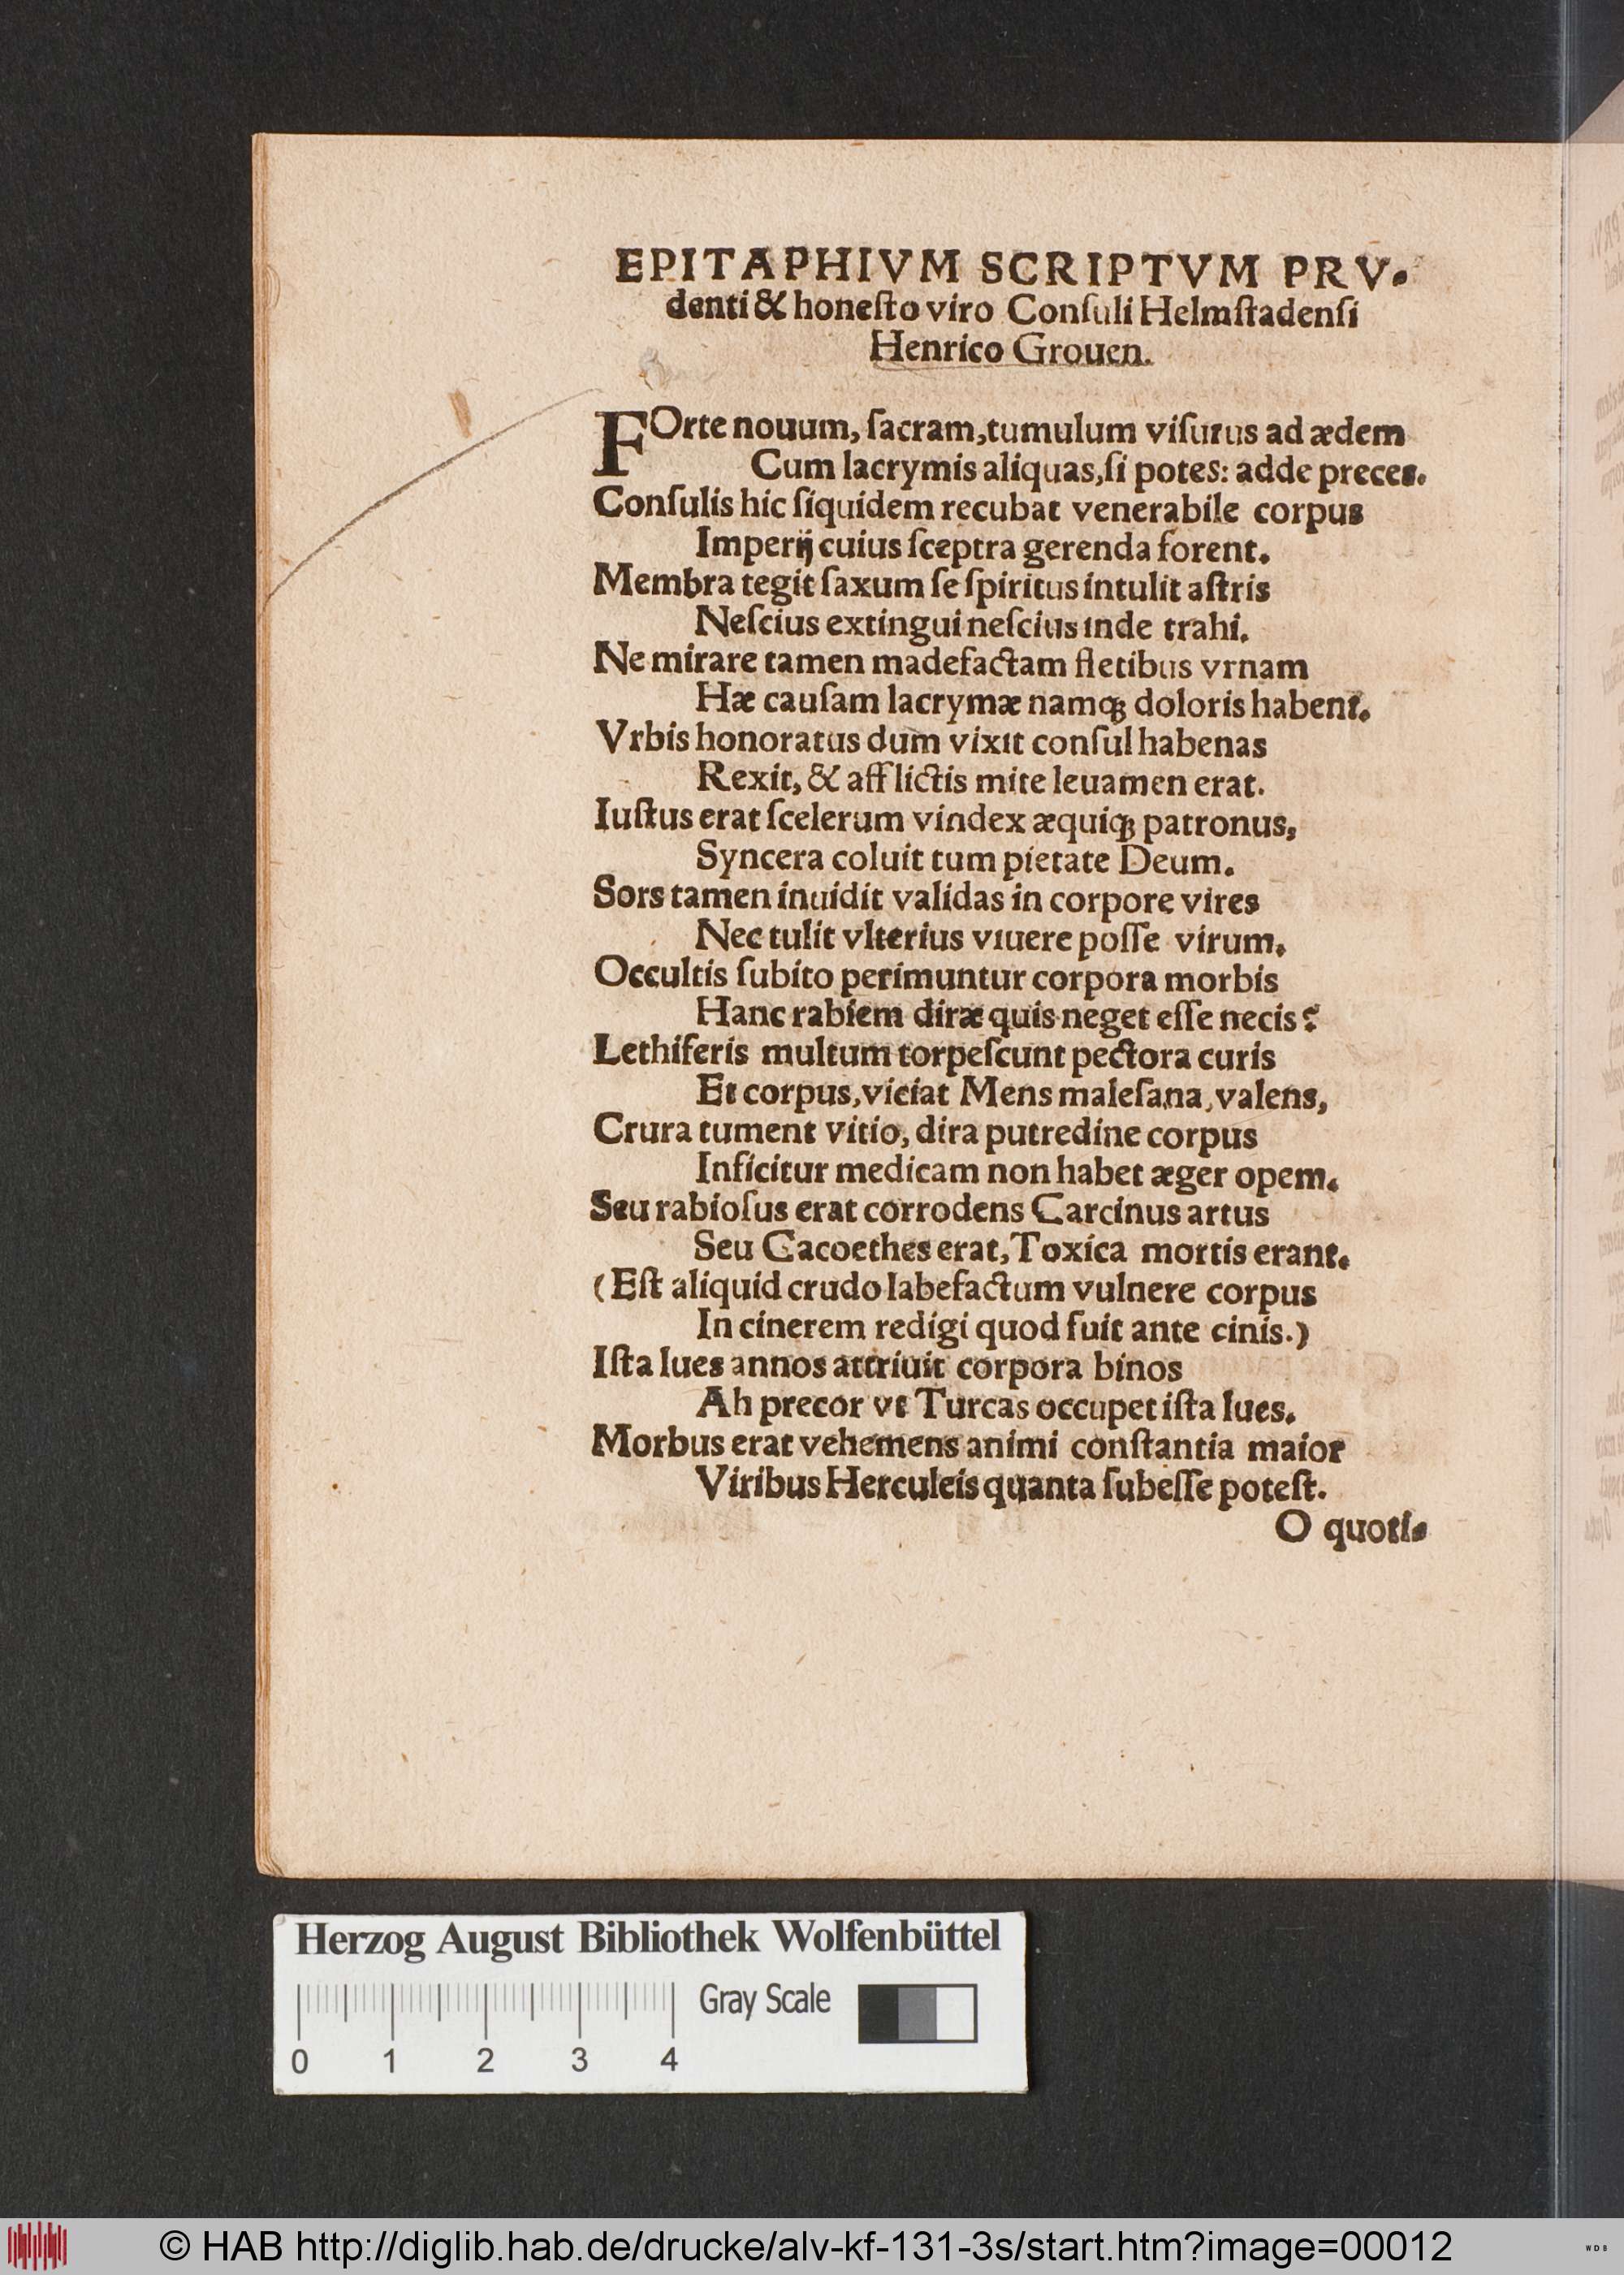 EPITAPHIVM SCRIPTVM PRV-
denti & honeſto viro Conſuli Helmſtadenſi
Henrico Grouen.
FOrte nouum, ſacram, tumulum viſurus ad ædem
Cum lacrymis aliquas, ſi potes: adde preces.
Conſulis hic ſiquidem recubat venerabile corpus
Imperij cuius ſceptra gerenda forent.
Membra tegit ſaxum ſe ſpiritus intulit aſtris
Neſcius extingui neſcius inde trahi.
Ne mirare tamen madefactam fletibus vrnam
Hæ cauſam lacrymæ namqꝫ doloris habent.
Vrbis honoratus dum vixit conſul habenas
Rexit, & afflictis mite leuamen erat.
Iuſtus erat ſcelerum vindex æquiqꝫ patronus,
Syncera coluit tum pietate Deum.
Sors tamen inuidit validas in corpore vires
Nec tulit vlterius viuere poſſe virum.
Occultis ſubito perimuntur corpora morbis
Hanc rabiem diræ quis neget eſſe necis?
Lethiferis multum torpeſcunt pectora curis
Et corpus, viciat Mens maleſana, valens,
Crura tument vitio, dira putredine corpus
Inficitur medicam non habet æger opem.
Seu rabioſus erat corrodens Carcinus artus
Seu Cacoethes erat, Toxica mortis erant.
(Eſt aliquid crudo labefactum vulnere corpus
In cinerem redigi quod fuit ante cinis.)
Iſta lues annos attriuit corpora binos
Ah precor vt Turcas occupet iſta lues.
Morbus erat vehemens animi conſtantia maior
Viribus Herculeis quanta ſubeſſe poteſt.
O quoti-
Herzog August Bibliothek Wolfenbüttel
Gray Scale
0 1 2 3 4
© HAB http://diglib.hab.de/drucke/alv-kf-131-3s/start.htm?image=00012
WDB